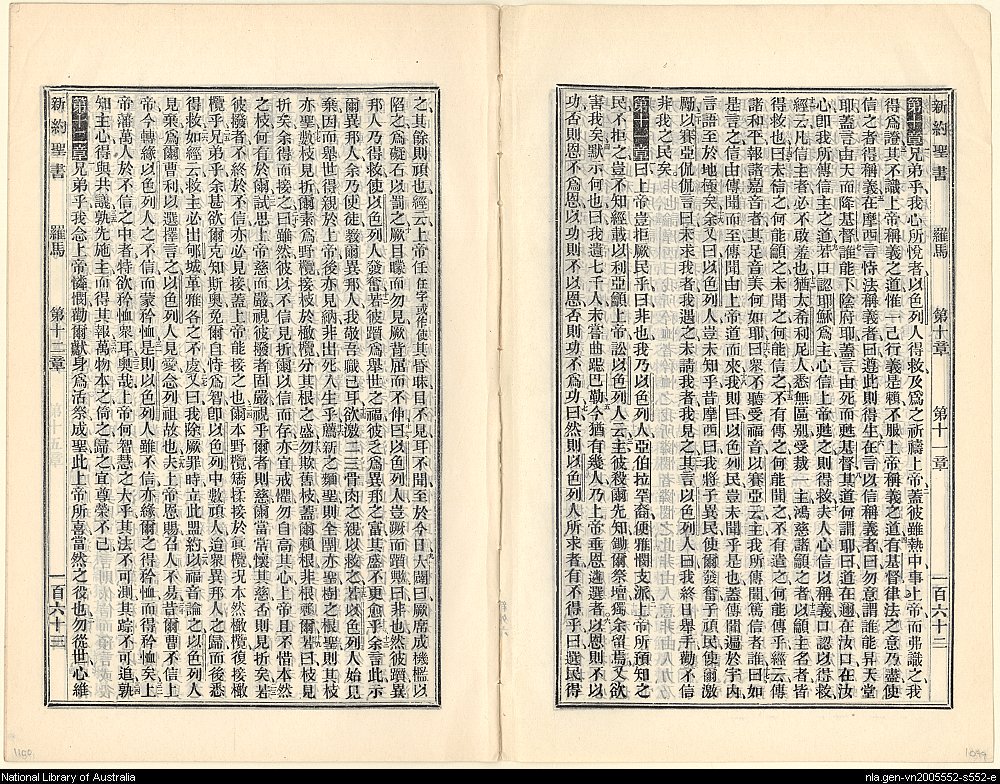 新約聖書 羅馬 第十章 第十一章 一百六十二
第十章兄弟乎我心所悅者以色列人得救及為之祈禱上帝蓋彼雖熱中事上帝而弗識之我
得為證其不識上帝稱義之道惟一己行義是賴不服上帝稱義之道有基督律法之意乃盡使
信之者得稱義在摩西言恃法稱義者曰遵此則得生在言以信稱義者曰勿意謂誰能昇天堂
耶蓋言由天而降基督誰能下陰府耶蓋言由死而甦基督其道何謂耶曰道在邇在汝口在汝
心即我所傳信主之道若口認耶穌為主心信上帝甦之則得救夫人心信以稱義口認以得救
經云凡信主者必不啟羞也猶太希利尼人悉無區別受裁一主鴻慈諸籲之者以籲主名者皆
得救也曰未信之何能籲之未聞之何能信之不有傳之何能聞之不有遣之何能傳乎經云傳
諸和平報諸嘉音者其足音美何如耶曰眾不聽受福音以賽亞云主我所傳聞篤信者誰曰如
是言之信由傳聞而至傳聞由上帝道而來我則曰以色列民豈未聞乎是也蓋傳聞遍於宇內
言語至於地極矣余又曰以色列人豈未知乎昔摩西曰我將子異民使爾發奮子頑民使爾激
勵以賽亞侃侃言曰未求我者我遇之未請我者我見之其言以色列人則曰我終日舉手勸不信
非我之民矣
第十一章曰上帝豈拒厥民乎曰非也我乃以色列人亞伯拉罕裔便雅憫支派上帝所預知之
民不拒之豈不知經載以利亞籲上帝訟以色列人云主彼殺爾先知鋤爾祭壇獨余留焉又欲
害我矣默示何也曰我遺七千人未嘗曲膝巴勒今猶有幾人乃上帝垂恩遴選者以恩則不以
功否則恩不為恩以功則不以恩否則功不為功曰然則以色列人所求者有不得乎曰選民得
之其餘則頑也經云上帝任任字或作使其昏昧目不見耳不聞至於今日大闢曰厥席成機檻以
陷之為礙石以罰之厥目矇而勿見厥背屈而不伸曰以色列人豈蹶而躓歟曰非也然彼躓異
邦人乃得救使以色列人發奮若彼躓為舉世之福彼乏為異邦之富其盛不更愈乎余言此示
爾異邦人余乃使徒教爾異邦人我敬吾職已耳欲激二三骨肉之親以救之若以色列人始見
棄因而舉世得親於上帝後亦見納非出死入生乎薦新之麵聖則全團亦聖樹之根聖則其枝
亦聖數枝見折爾素為野欖接枝於橄欖分其根之盛勿欺舊枝蓋爾賴根非根賴爾若曰枝見
折矣余得而接之曰雖然彼以不信見折爾以信而存亦宜戒懼勿自高其心上帝且不惜本然
之枝何有於爾試思上帝慈而嚴視彼躓者固嚴視乎爾者則慈爾當常懷其慈否則見折矣若
彼躓者不終於不信亦必見接蓋上帝能接之也爾本野欖矯揉接於真欖況本然橄欖復接橄
欖乎兄弟乎余甚欲爾克知斯奧免爾自恃為智即以色列中數頑人迨眾異邦人之歸而後悉
得救如經云救主必出郇城革雅各之不虔又曰我除厥罪時立此盟約以福音論之以色列人
見棄為爾曹利以選擇言之以色列人見愛念列祖故也夫上帝恩賜召人不易昔爾曹不信上
帝今轉緣以色列人之不信而蒙矜恤是則以色列人雖不信亦緣爾之得矜恤而得矜恤矣上
帝藩萬人於不信之中者特欲矜恤眾耳奧哉上帝何智慧之大乎其法不可測其踪不可追孰
知主心得與共議孰先施主而得其報萬物本之倚之歸之宜尊榮不已
第十二章兄弟乎我念上帝憐憫勸爾獻身為活祭成聖此上帝所喜當然之役也勿從世心維
新約聖書 羅馬 第十二章 一百六十三
1100
1099
National Library of Australia
nla.gen-vn2005552-s552-e